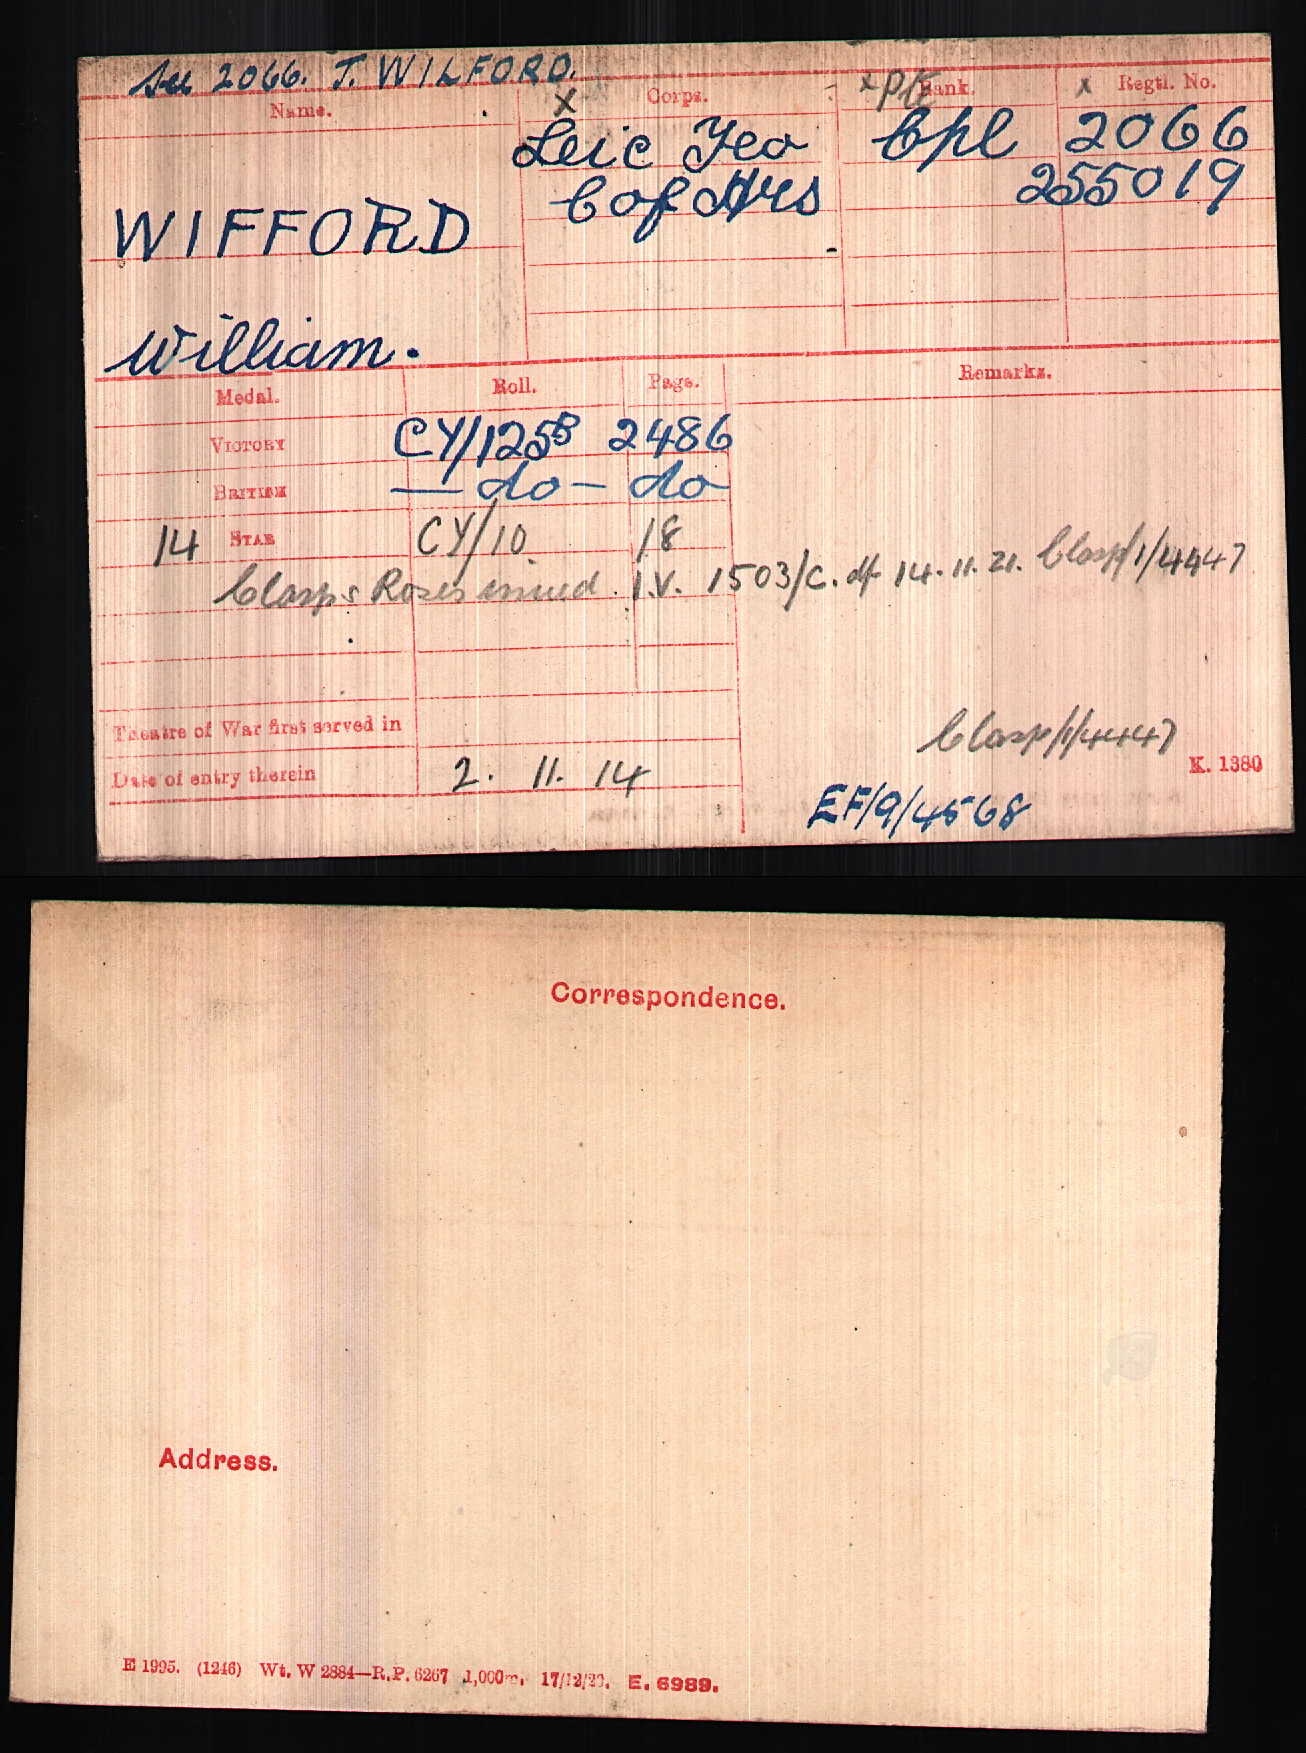 See 2066. T. WILFORD.
Name. Corps. Rank. Regtl. No.
x x Pte x
Leic Yeo Cpl 2066
C of Hrs 255019
WIFFORD
William.
Medal. Roll. Page. Remarks.
VICTORY CY/125B 2486
BRITISH — do — do
14 STAR CY/10 18
Clasp & Roses issued. I.V. 1503/C. df 14.11.21. Clasp/1/4447
Theatre of War first served in
Clasp/1/4447
Date of entry therein 2. 11. 14
K. 1380
EF/9/4568
Correspondence.
Address.
E 1995. (1246) Wt. W 2884—R.P. 6267 1,000m. 17/12/20. E. 6989.